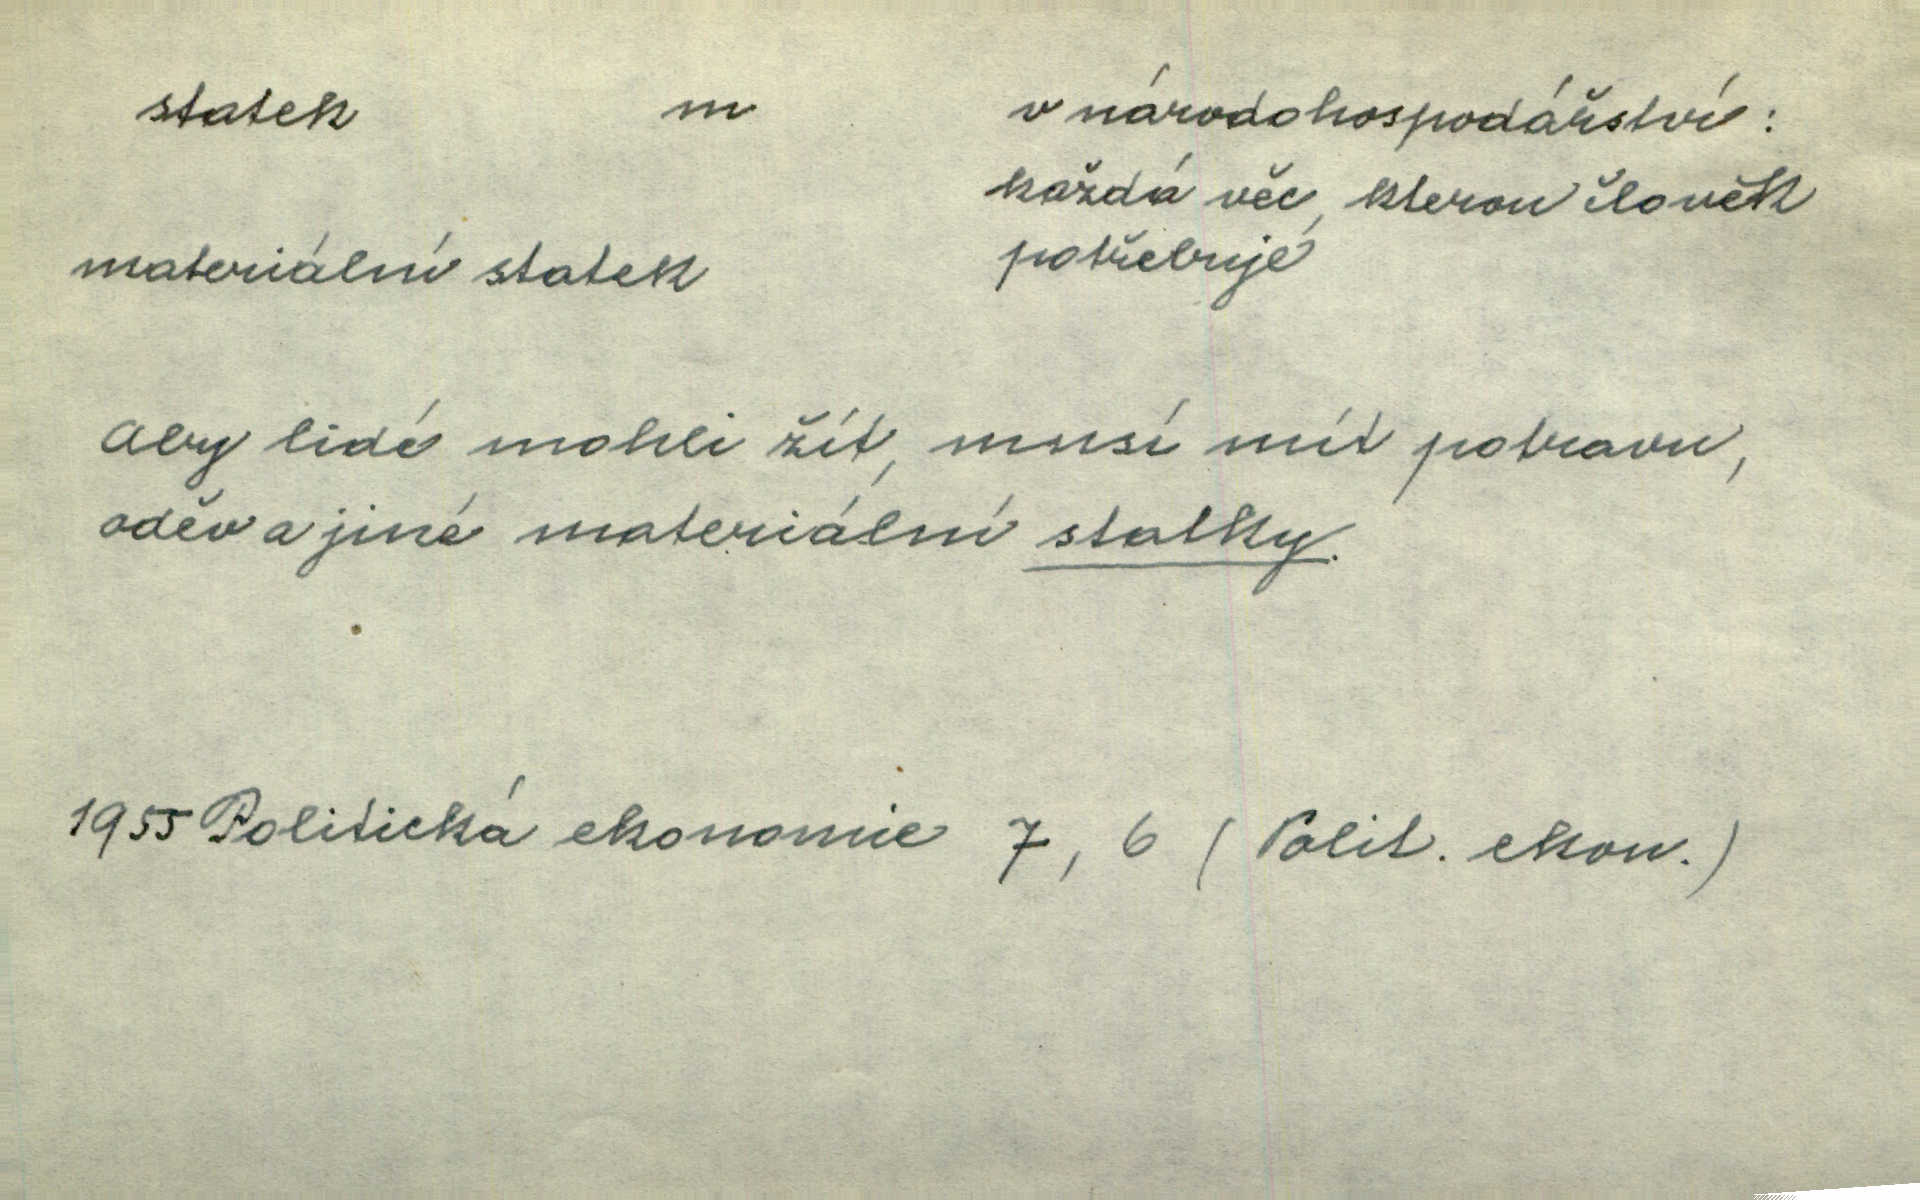 statek m v národohospodářství:
každá věc, kterou člověk
materiální statek potřebuje
Aby lidé mohli žít, musí mít potravu,
oděv a jiné materiální statky.
1955 Politická ekonomie 7, 6 (Polit. ekon.)